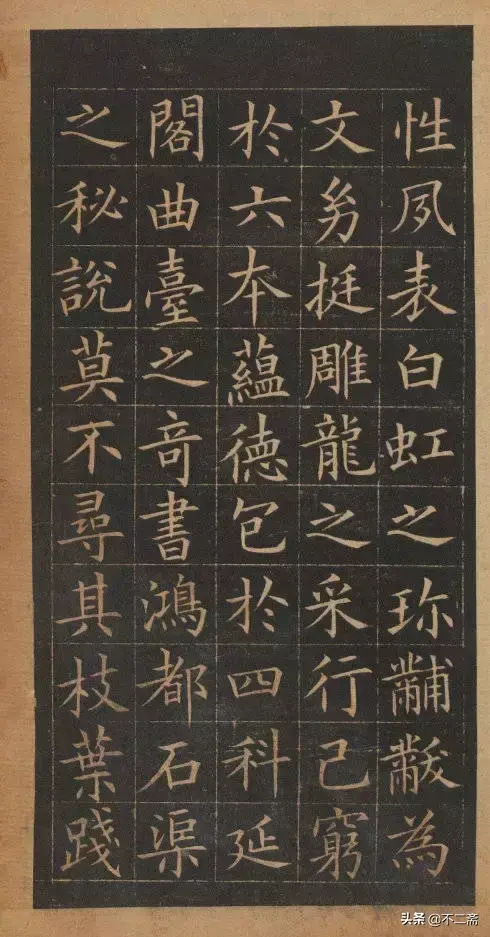 性夙表白虹之珎黼黻為
文多挺雕龍之采行己窮
於六本蘊德包於四科延
閣曲臺之奇書鴻都石渠
之秘說莫不尋其枝葉踐
头条 @不二斋